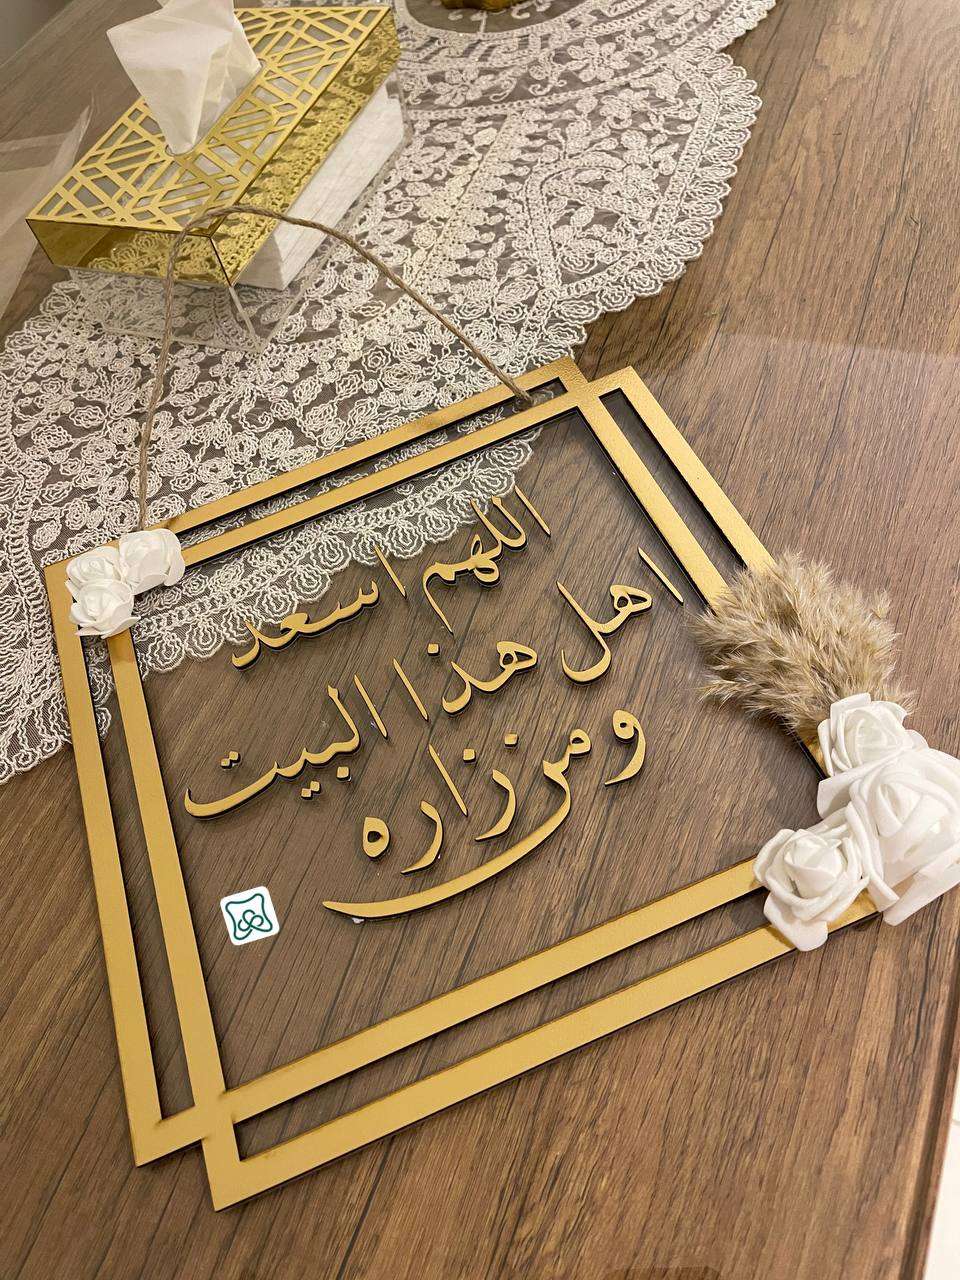 اللهم اسعد
اهل هذا البيت
ومن زاره